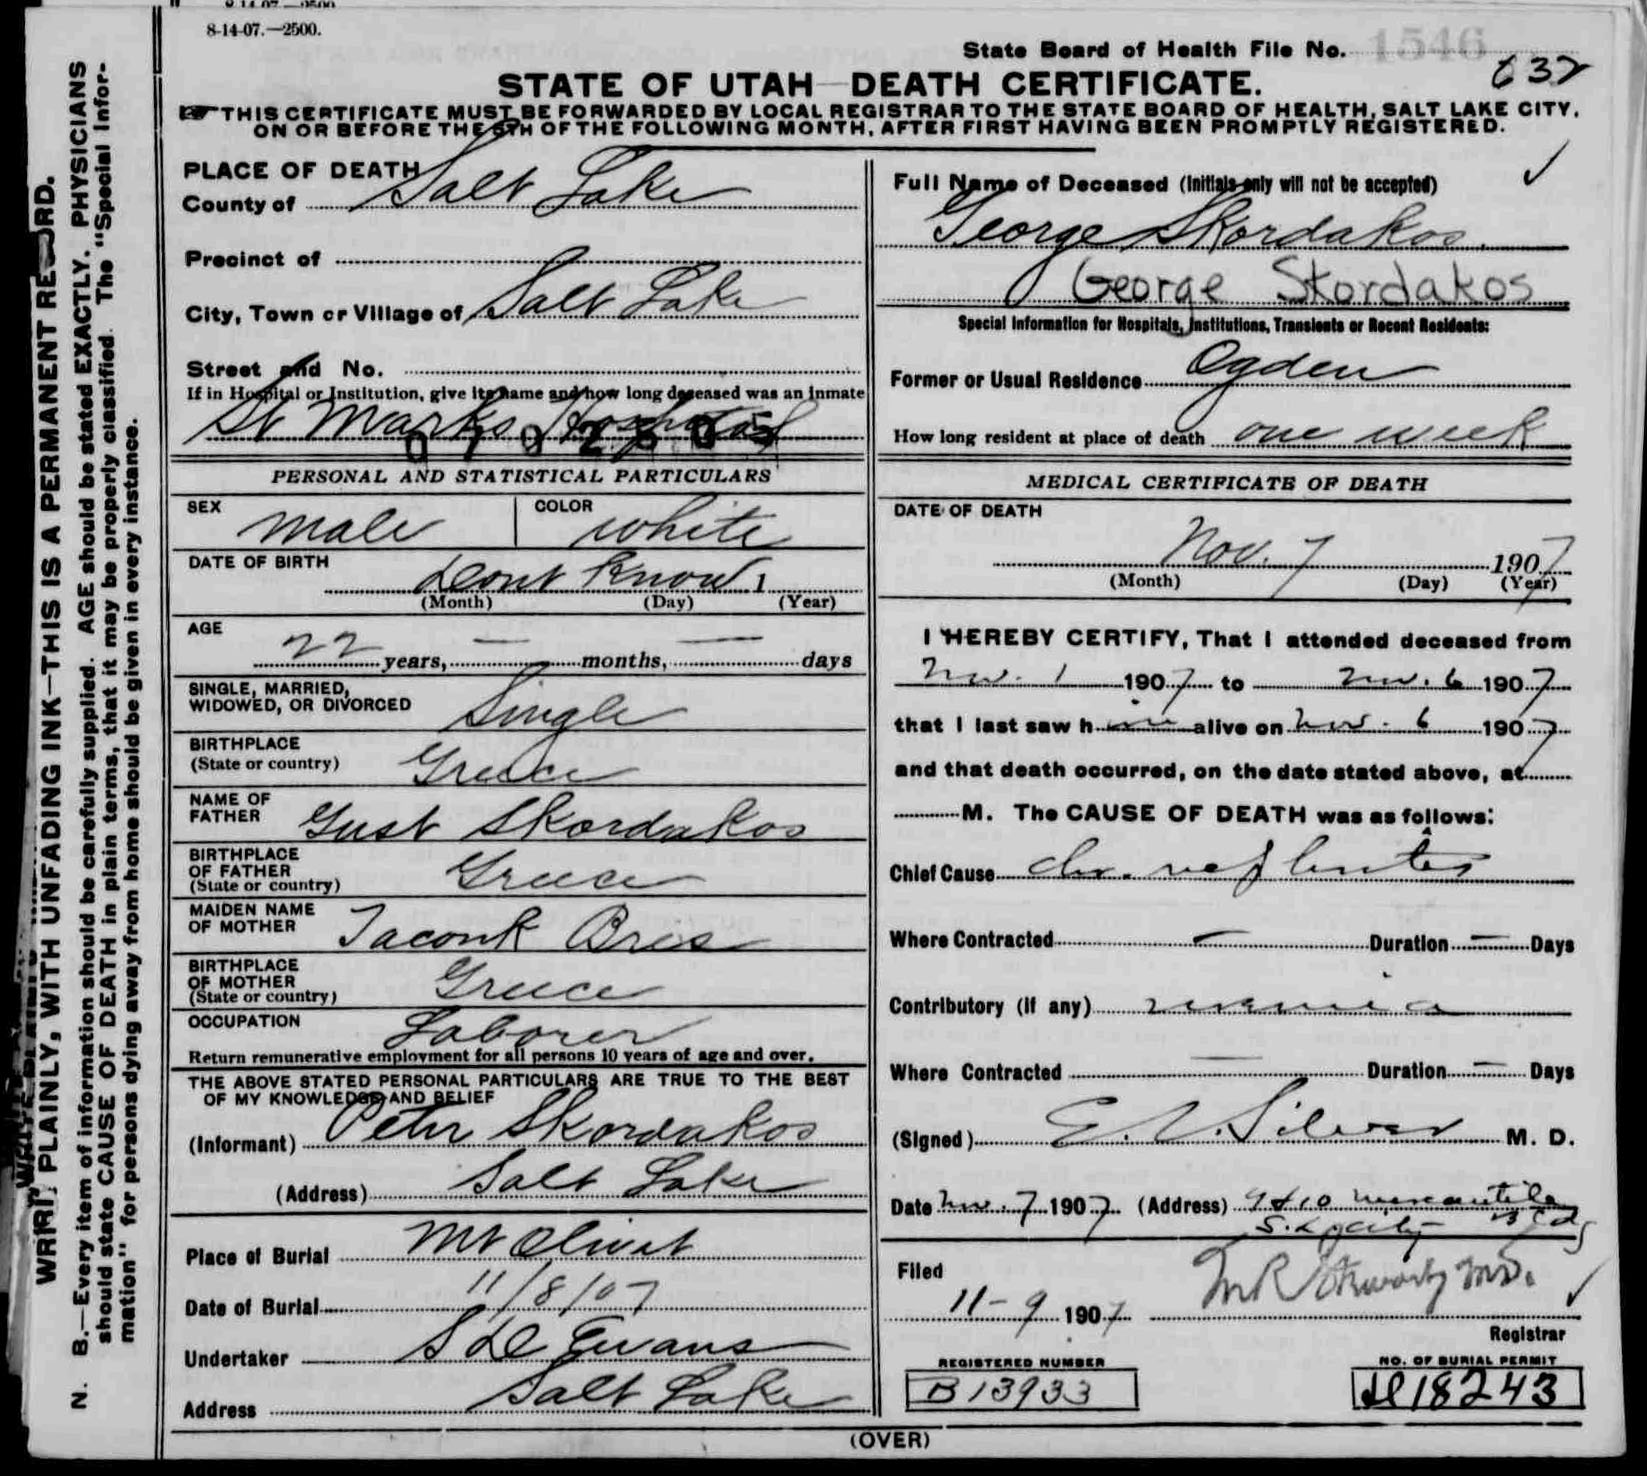 8-14-07.—2500.
State Board of Health File No. 1546
632
STATE OF UTAH—DEATH CERTIFICATE.
☞ THIS CERTIFICATE MUST BE FORWARDED BY LOCAL REGISTRAR TO THE STATE BOARD OF HEALTH, SALT LAKE CITY,
ON OR BEFORE THE 5TH OF THE FOLLOWING MONTH, AFTER FIRST HAVING BEEN PROMPTLY REGISTERED.
WRITE PLAINLY, WITH UNFADING INK—THIS IS A PERMANENT RECORD.
N. B.—Every item of information should be carefully supplied. AGE should be stated EXACTLY. PHYSICIANS
should state CAUSE OF DEATH in plain terms, that it may be properly classified. The "Special Infor-
mation" for persons dying away from home should be given in every instance.
PLACE OF DEATH
County of Salt Lake
Precinct of
City, Town or Village of Salt Lake
Street and No.
If in Hospital or Institution, give its name and how long deceased was an inmate
St Marks Hospital
PERSONAL AND STATISTICAL PARTICULARS
SEX male COLOR white
DATE OF BIRTH Dont Know 1
(Month) (Day) (Year)
AGE
22 years, — months, — days
SINGLE, MARRIED,
WIDOWED, OR DIVORCED Single
BIRTHPLACE
(State or country) Greece
NAME OF
FATHER Gust Skordakos
BIRTHPLACE
OF FATHER
(State or country) Greece
MAIDEN NAME
OF MOTHER
BIRTHPLACE
OF MOTHER
(State or country) Greece
OCCUPATION Laborer
Return remunerative employment for all persons 10 years of age and over.
THE ABOVE STATED PERSONAL PARTICULARS ARE TRUE TO THE BEST
OF MY KNOWLEDGE AND BELIEF
(Informant) Peter Skordakos
(Address) Salt Lake
Place of Burial Mt Olivet
Date of Burial 11/8/07
Undertaker Evans
Address Salt Lake
Full Name of Deceased (Initials only will not be accepted)
George Skordakos
George Skordakos
Special Information for Hospitals, Institutions, Transients or Recent Residents:
Former or Usual Residence Ogden
How long resident at place of death one week
MEDICAL CERTIFICATE OF DEATH
DATE OF DEATH
Nov. 7 1907
(Month) (Day) (Year)
I HEREBY CERTIFY, That I attended deceased from
Nov. 1 1907 to Nov. 6 1907
that I last saw him alive on Nov. 6 1907
and that death occurred, on the date stated above, at
M. The CAUSE OF DEATH was as follows:
Chief Cause chr. nephritis
Where Contracted — Duration — Days
Contributory (if any) uremia
Where Contracted — Duration — Days
(Signed) Silver M. D.
Date Nov. 7 1907 (Address) 9 & 10 Mercantile
Bldg
Filed
11-9 1907
Registrar
REGISTERED NUMBER
B13933
NO. OF BURIAL PERMIT
18243
(OVER)